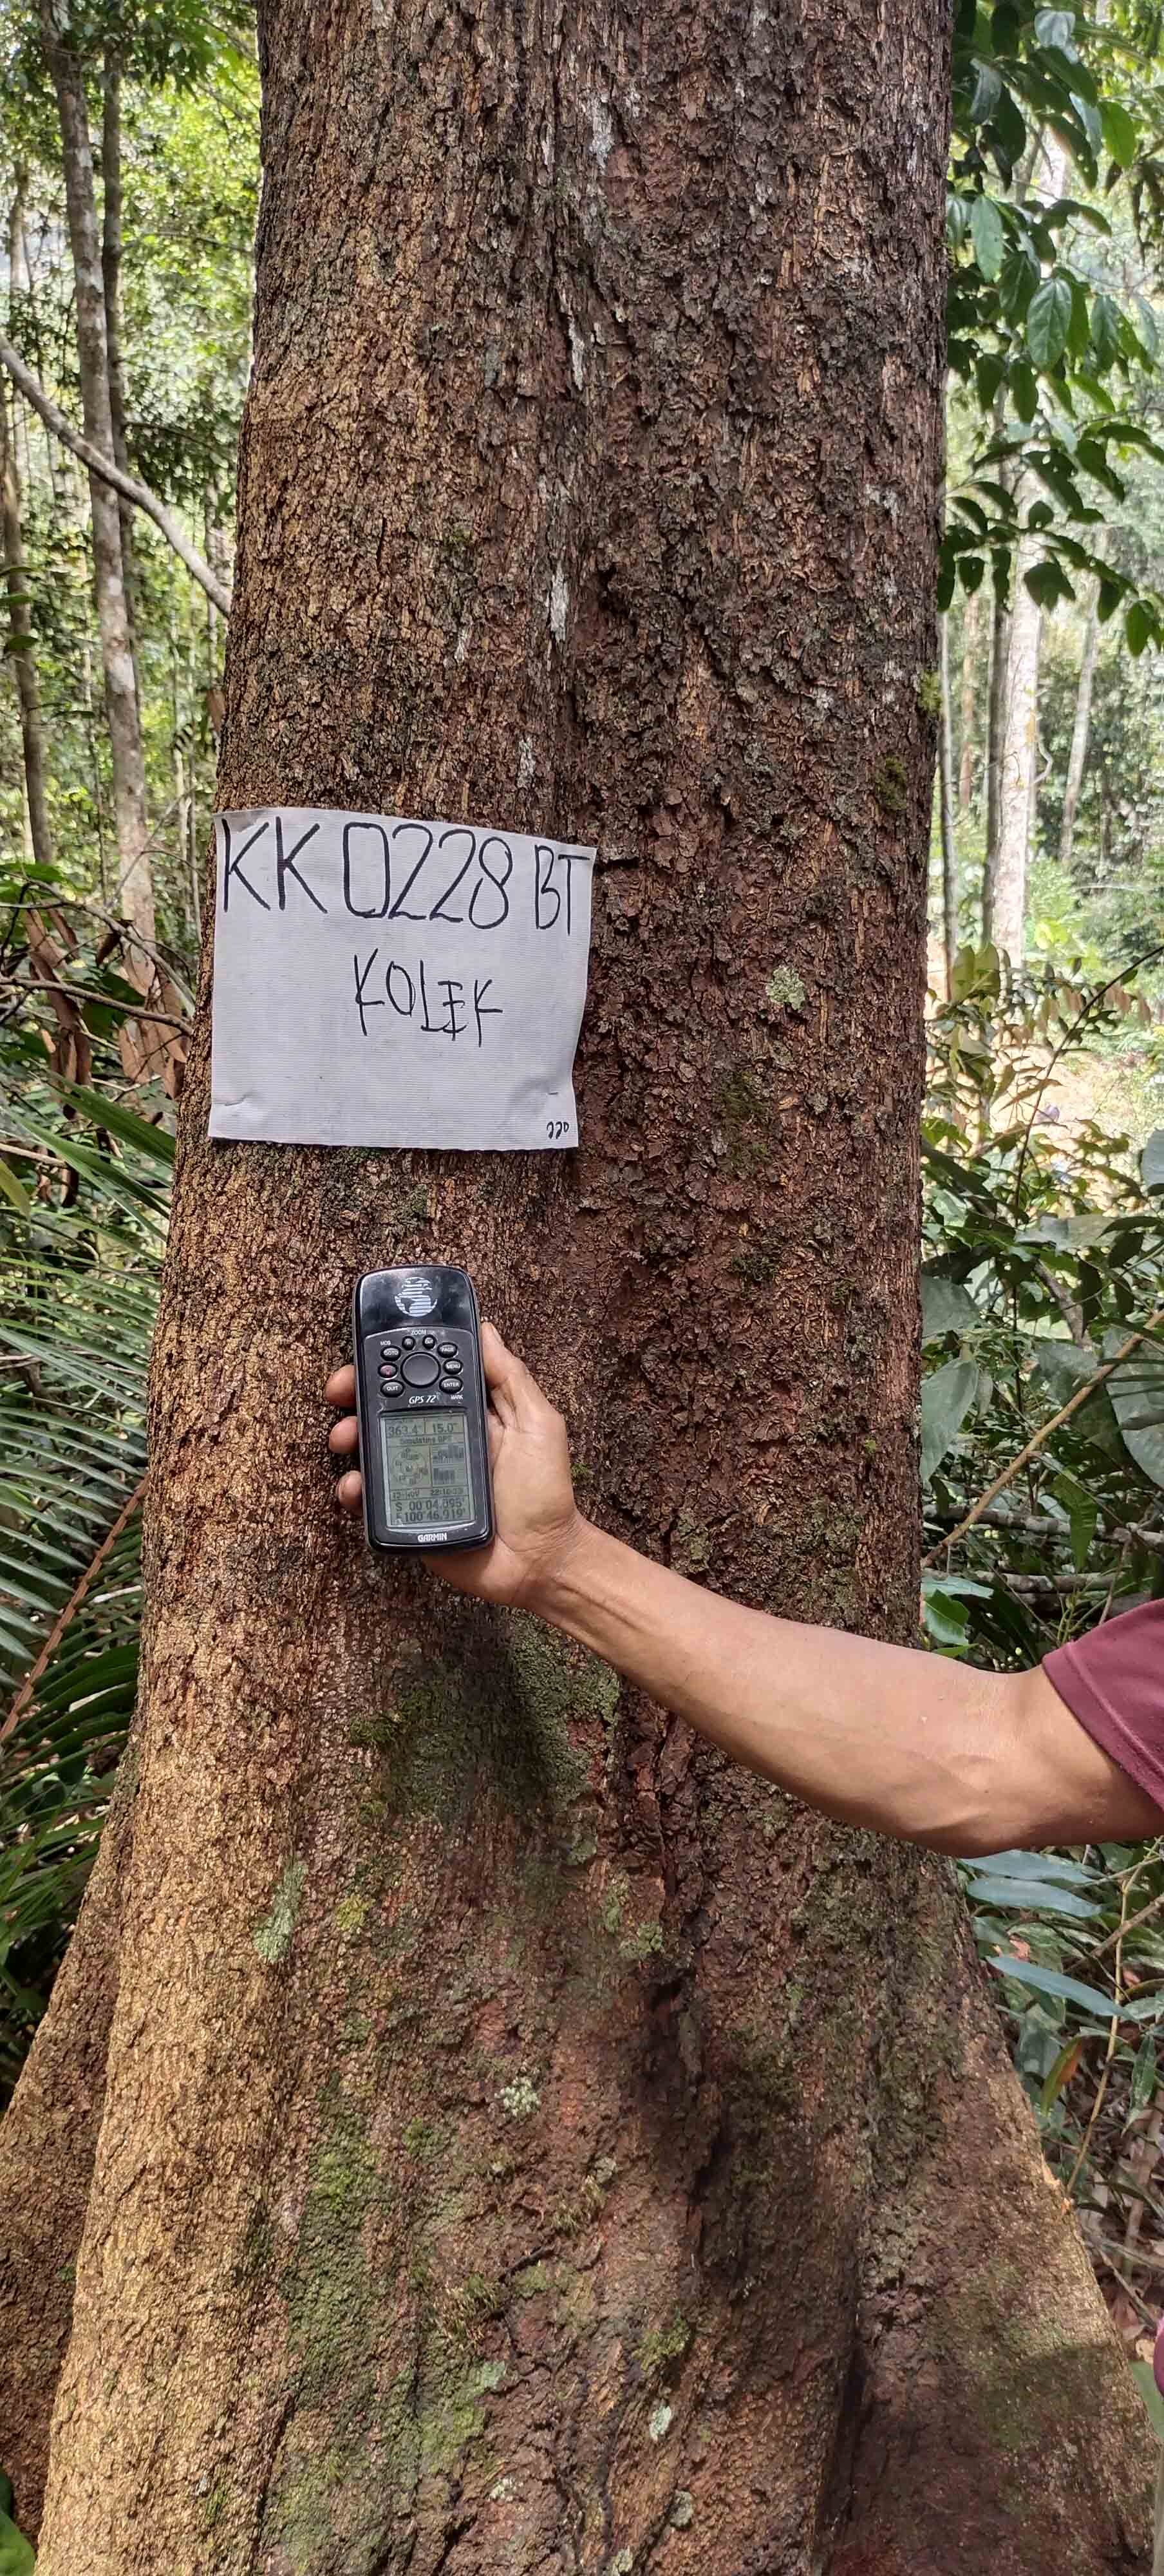 KK0228 BT
KOLEK
220
ZOOM
GOTO
PAGE
MENU
QUIT
ENTER
MARK
GPS 72
363.4' 15.0'
Simulating GPS
12-NOV
S 00°04.095'
E100°46.919'
GARMIN